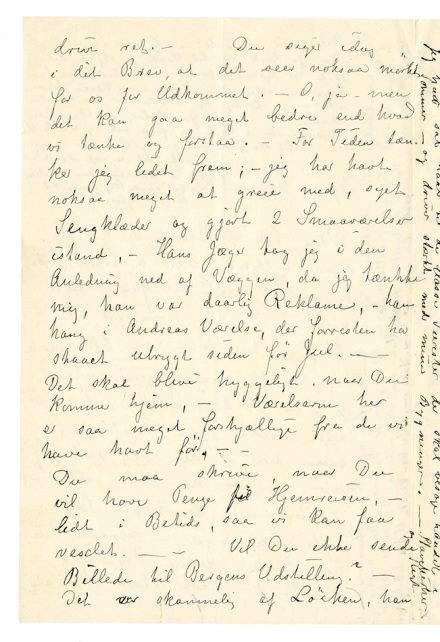 drive ret. — Du siger idag
i dit Brev, at det seer noksaa mörkt
for os for Udkommet. — O, ja — men
det kan gaa meget bedre end hvad
vi tænke og forstaa. — For Tiden tæn-
ker jeg lidet frem; — jeg har havt
noksaa meget at greie med, syet
Sengklæder og gjort 2 Smaaværelser
istand, — Hans Jæger tog jeg i den
Anledning ned af Væggen, da jeg tænkte
mig, han var daarlig Reklame, — han
hang i Andreas Værelse, der forresten har
staaet ubrygt siden før Jul. —
Det skal blive hyggeligt, naar Du
komme hjem, — Værelserne her
er saa meget forskjællige fra de vi
have havt før. —
Du maa skrive, naar Du
vil have Penge Hjemreisen, —
lidt i Betids, saa vi kan faa
vexlet. — — Vil Du ikke sende
Billede til Bergens Udstilling? —
Det var skammelig af Löchen, han